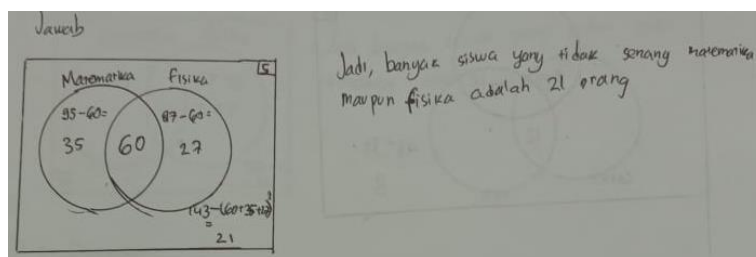 Jawab
S
Matematika Fisika
95-60= 87-60=
35 60 27
143-(60+35+27)
=
21
Jadi, banyak siswa yang tidak senang matematika
maupun fisika adalah 21 orang